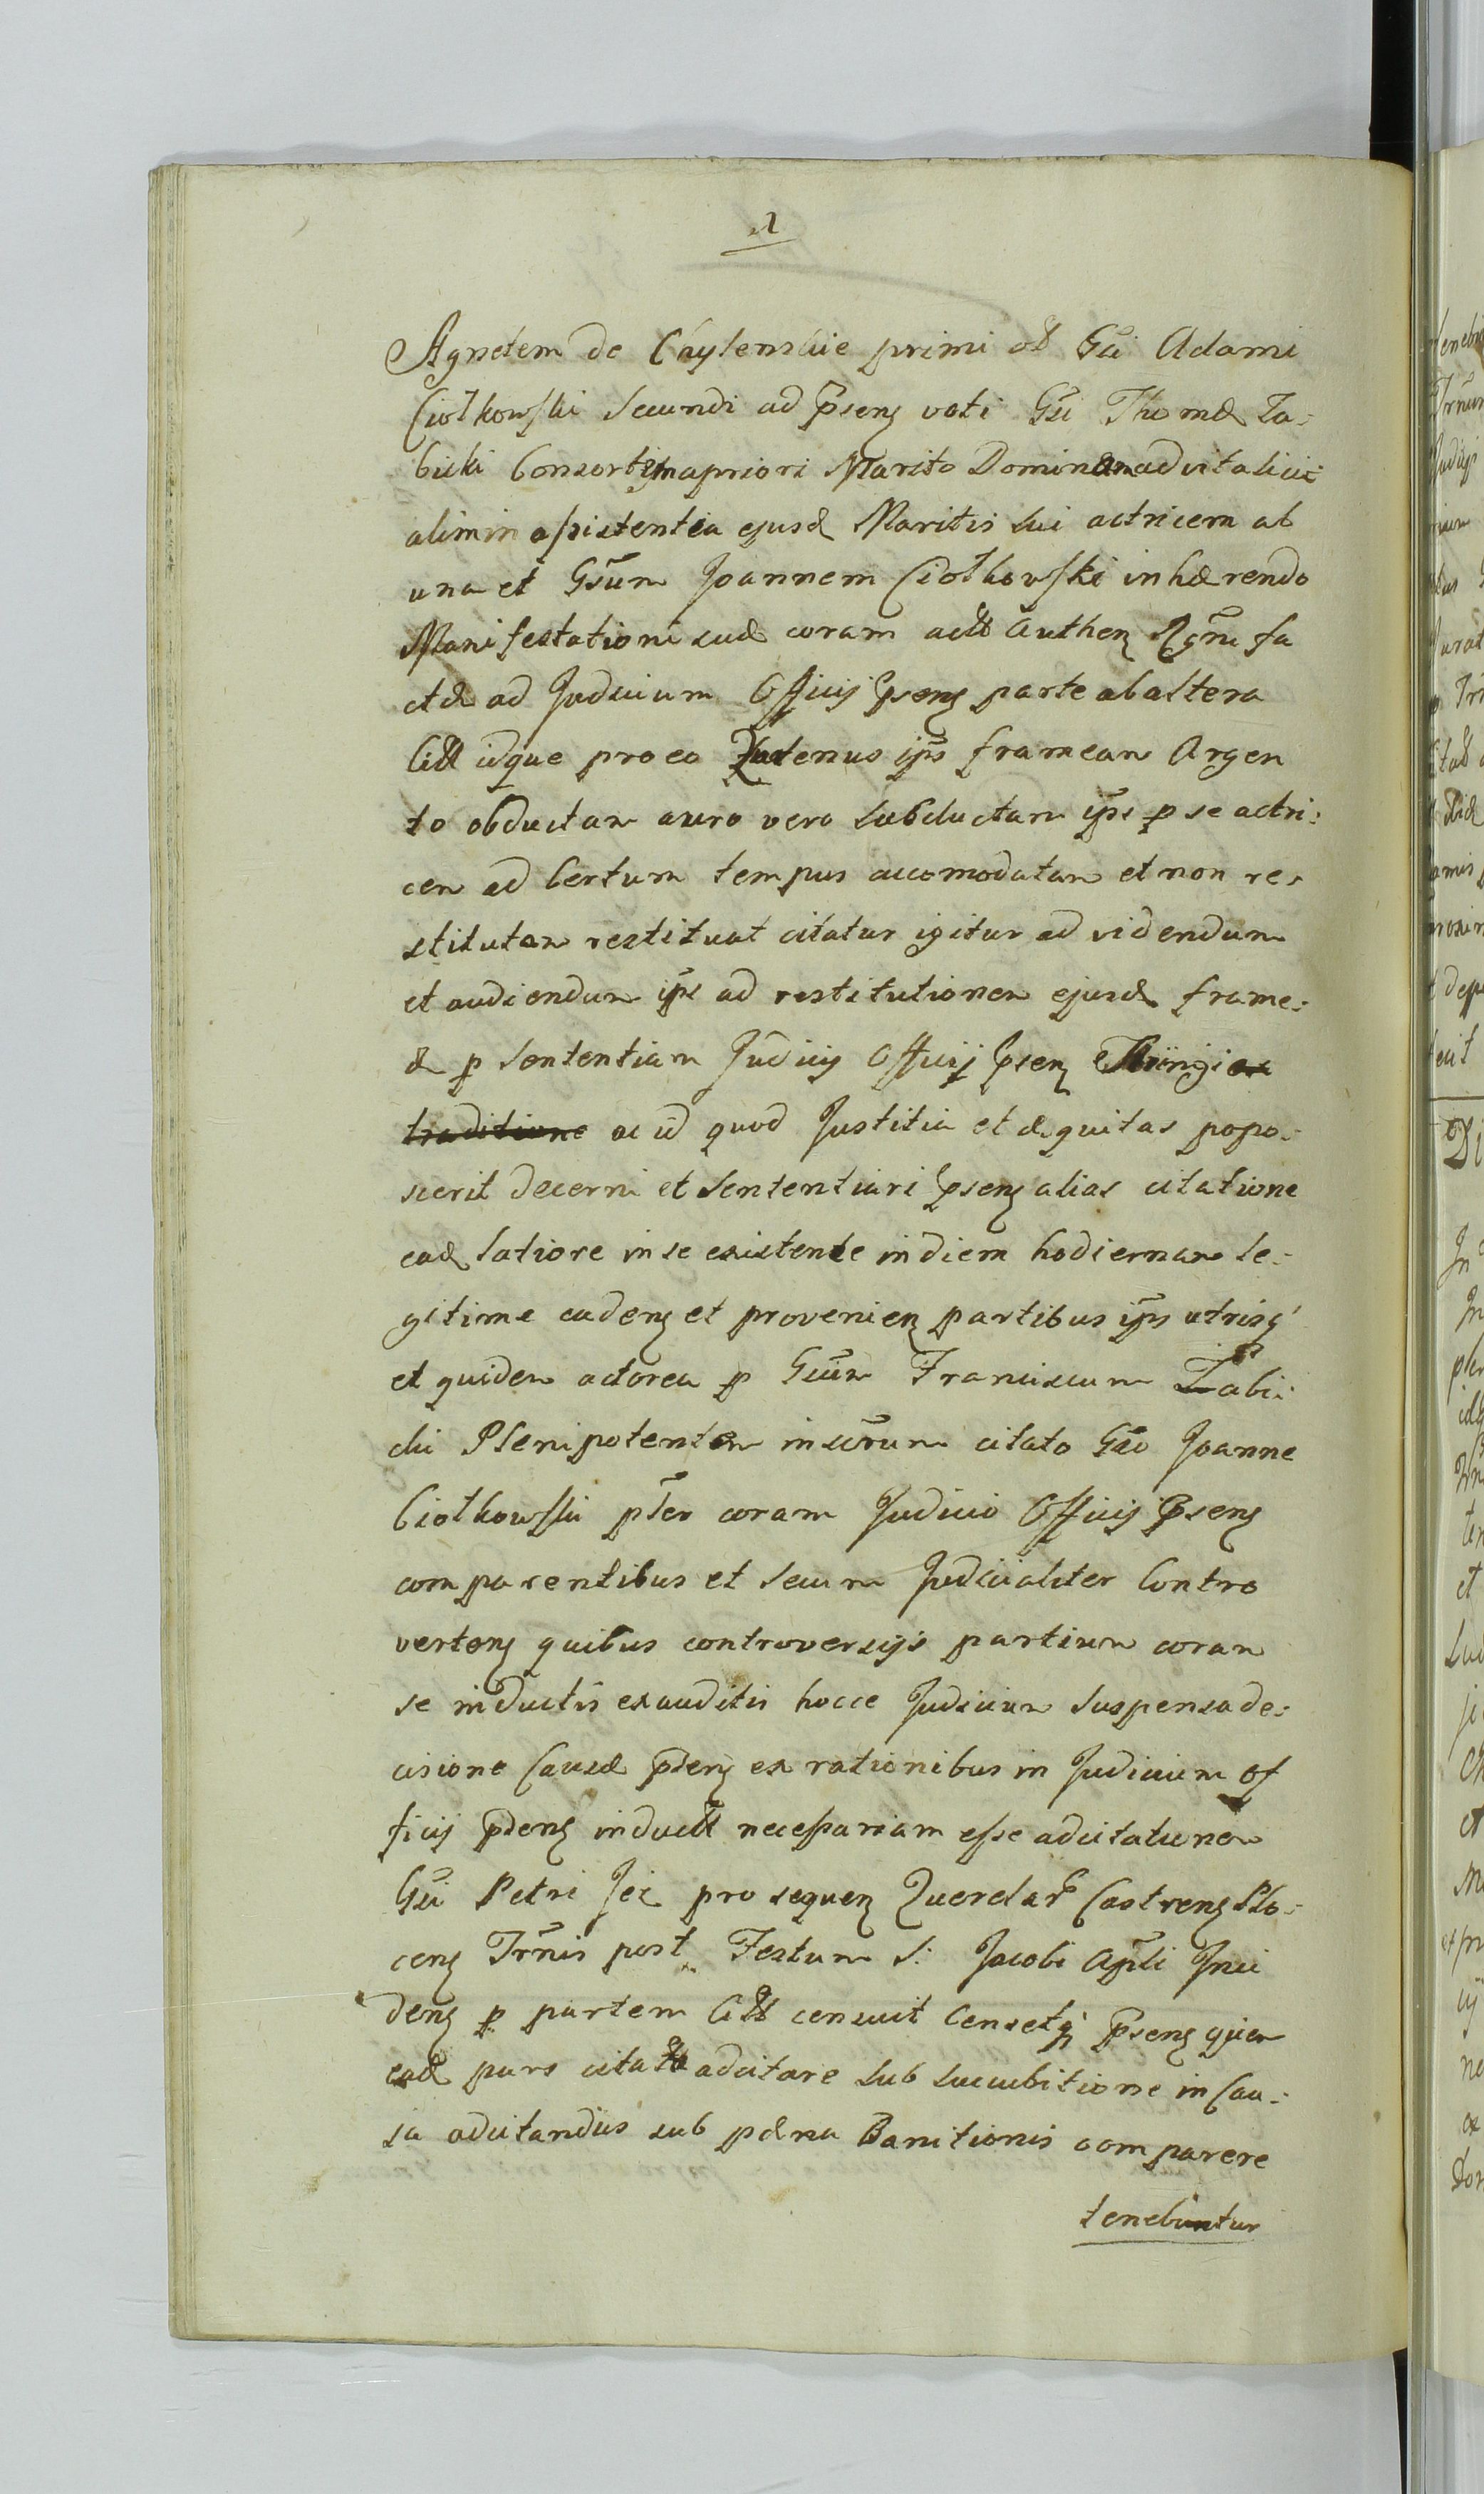 Agnetem de Chylenskie primi ol Gsi Adami
Ciołkowski secundi ad pseng voti Gsi Thomæ Za-
bicki Consortem a priori Marito Dominam advitalici-
alim in assistentia ejusd Maritis sui actricem ab
una et Gsum Joannem Ciołkowski inhærendo
Manifestationi suæ coram actis authen Rgni fa
ctæ ad Judicium Officij pseng parte ab altera
Citt idque pro eo Quatenus ips frameam Argen
to obductam auro vero subductam ips p se actri-
cem ad Certum tempus accomodatam et non re-
stitutam restituat citatur igitur ad videndum
et audiendum ips ad restitutionem ejusd frame-
æ p sententiam Judicij Officij psen
traditione ac id quod Justitia et æquitas popo-
scerit decerni et sententiari pseng alias citatione
ead latiore in se existente in diem hodiernam le-
gitime cadeng et provenien partibus ips utrisq
et quidem actorea p Gsum Franciscum Zabi-
cki Plenipotentem in scrum citato Gso Joanne
Ciołkowski pter coram Judicio Officij pseng
comparentibus et secum Judicialiter Contro
verteng quibus controversijs partium coram
se inductis exauditis hocce Judicium suspensa de-
cisione Causæ pseng ex rationibus in Judicium of
ficij pseng induct necessariam esse adcitationem
Gsi Petri Jeż pro sequen Querelar Castreng Plo-
ceng Trnis post Festum S: Jacobi Apli Inci
deng p partem Citt censuit Censetq pseng quem
ead pars citata adcitare sub succubitione in Cau-
sa adcitandus sub pæna Banitionis comparere
tenebuntur